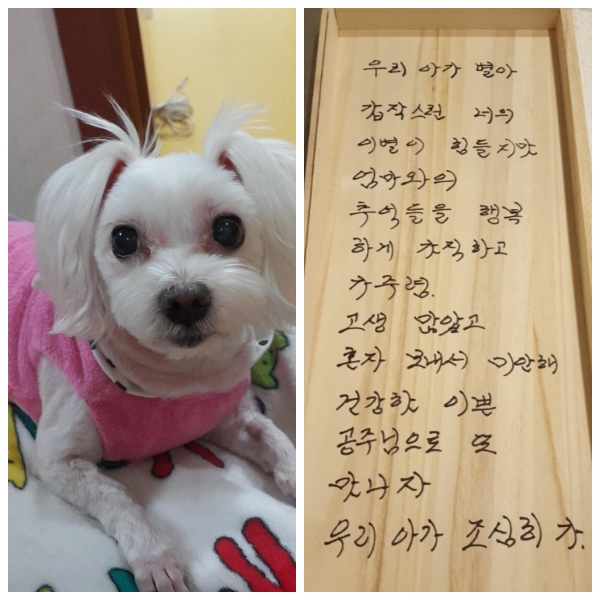 우리 아가 별아
갑작스런 너의
이별이 힘들지만
엄마와의
추억들을 행복
하게 간직하고
가주렴.
고생 많았고
혼자 보내서 미안해
건강한 이쁜
공주님으로 또
만나자
우리 아가 조심히 가.